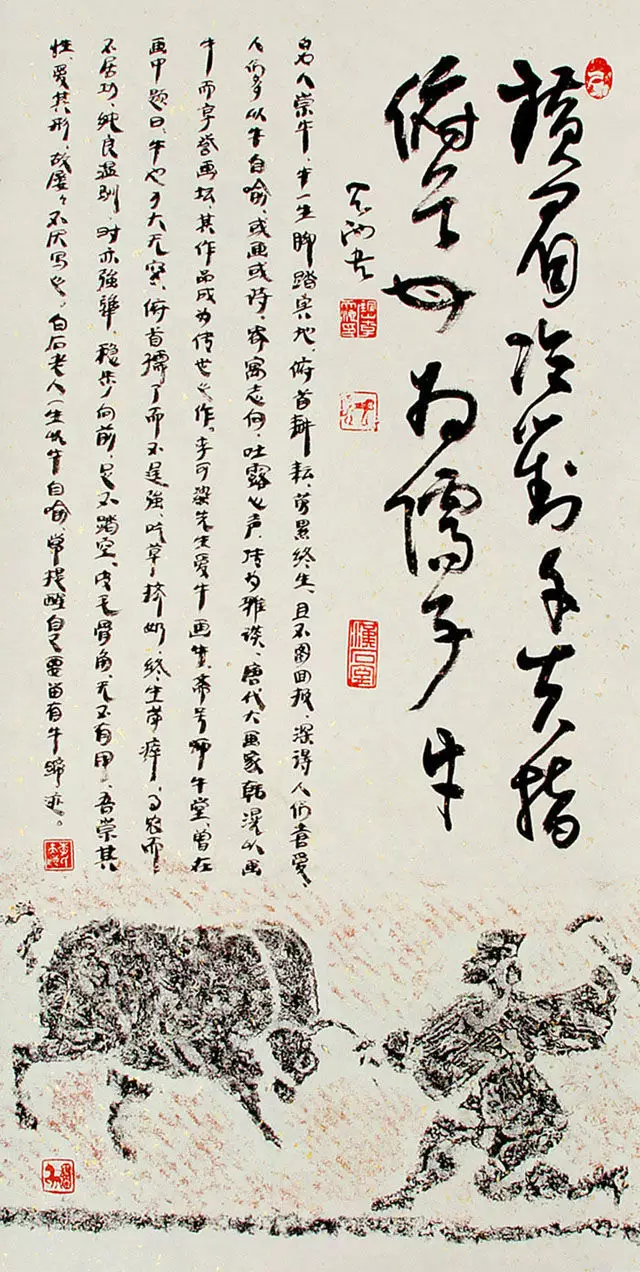 横眉冷對千夫指
俯首甘为孺子牛
人崇牛，牛一生脚踏實地，俯首耕耘，劳累终生，且不图回报，深得人们喜爱，
人们多以牛自喻，或画或诗，寄寓志向，吐露心声，传为雅谈，唐代大画家韩滉以画
牛而享誉画坛，其作品成为传世之作。李可染先生爱牛画牛，斋号师牛堂，曾在
画中题曰，牛也力大无穷，俯首孺子而不逞强，吃草挤奶，终生劳瘁，事农而
不居功，纯良温驯，时亦强犟，稳步向前，足不踏空，皮毛骨角，无不有用，吾崇其
性，爱其形，故屡々不厌写之，白石老人一生以牛自喻，常提醒自己要留有牛蹄迹。